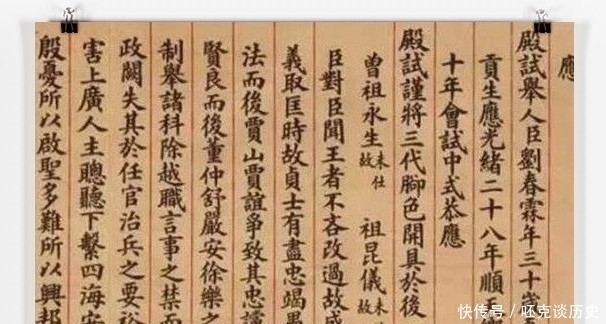 應
殿試舉人臣劉春霖年三十歲
貢生應光緒二十八年順
十年會試中式恭應
殿試謹將三代腳色開具於後
曾祖永生 未仕故 祖昆儀 未仕故
臣對臣聞王者不吝改過故
義取匡時故貞士有盡忠竭
法而後賈山賈誼爭致其忠讜
賢良而後董仲舒嚴安徐樂之
制舉諸科除越職言事之禁而
政闕失其於任官治兵之要裕
害上廣人主聰聽下繫四海安
殷憂所以啟聖多難所以興邦
快传号 / 呸克谈历史